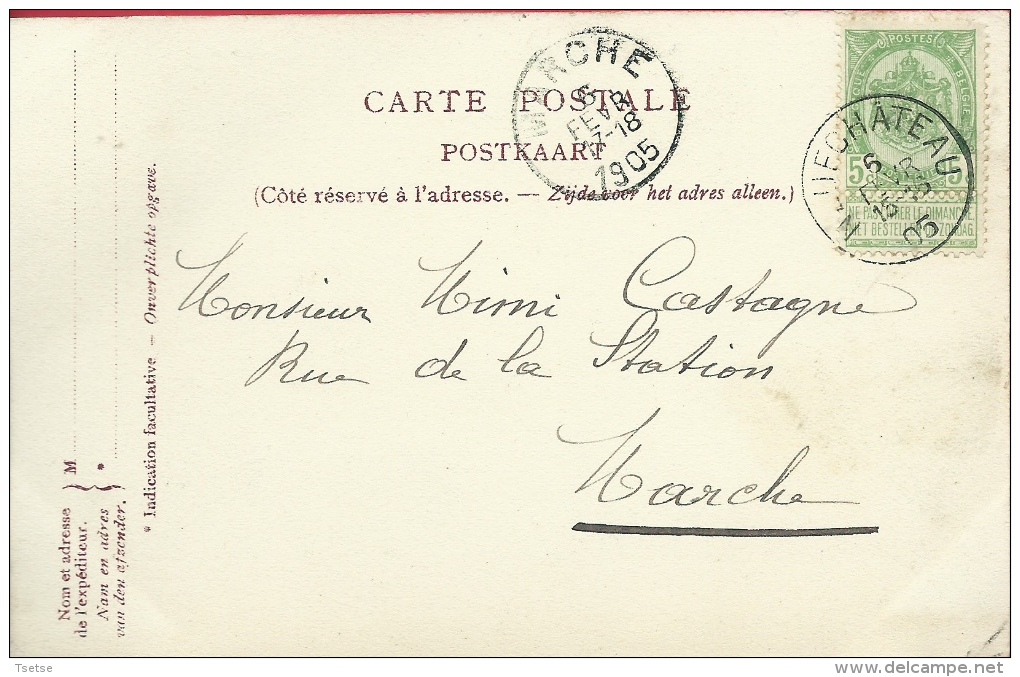 CARTE POSTALE
POSTKAART
(Côté réservé à l'adresse. — Zijde voor het adres alleen.)
MARCHE
6
FEVR
17-18
1905
POSTES
BELGIE
NE PAS LIVRER LE DIMANCHE
NIET BESTELLEN OP ZONDAG
NEUFCHÂTEAU
6
05
Monsieur Mimi Castagne
Rue de la Station
Marche
Nom et adresse
de l'expéditeur.
Nam en adres
van den afzender.
M
*
* Indication facultative — Onverplichte opgave.
Tsetse
delcampe.net